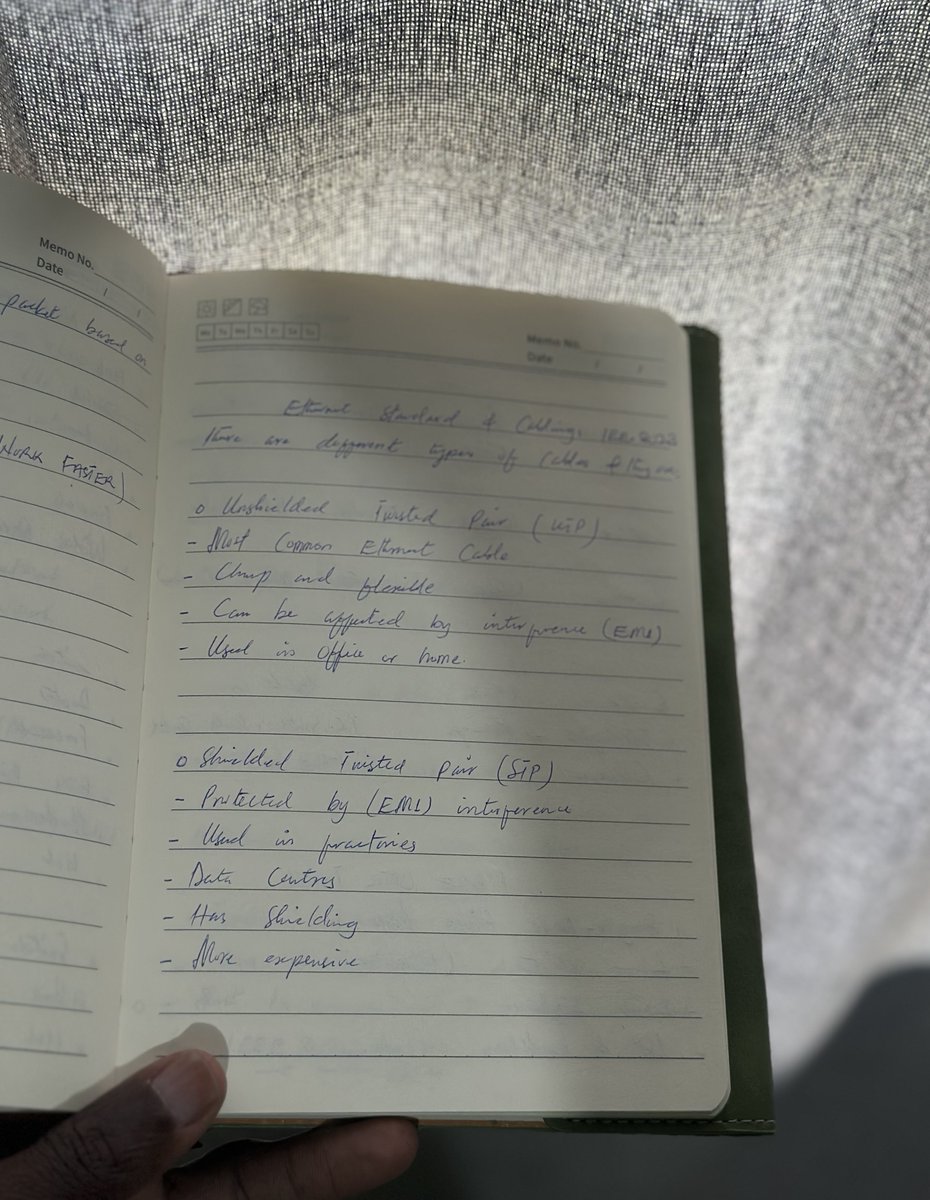 Memo No.
Date / /
packet based on
WORK FASTER)
Mo Tu We Th Fr Sa Su
Memo No.
Date / /
Ethernet Standard & Cabling,
There are different types of Cables
o Unshielded Twisted Pair (UTP)
- Most Common Ethernet Cable
- Cheap and flexible
- Can be affected by interference (EMI)
- Used in Office or home.
o Shielded Twisted Pair (STP)
- Protected by (EMI) interference
- Used in
- Data Centres
- Has Shielding
- More expensive